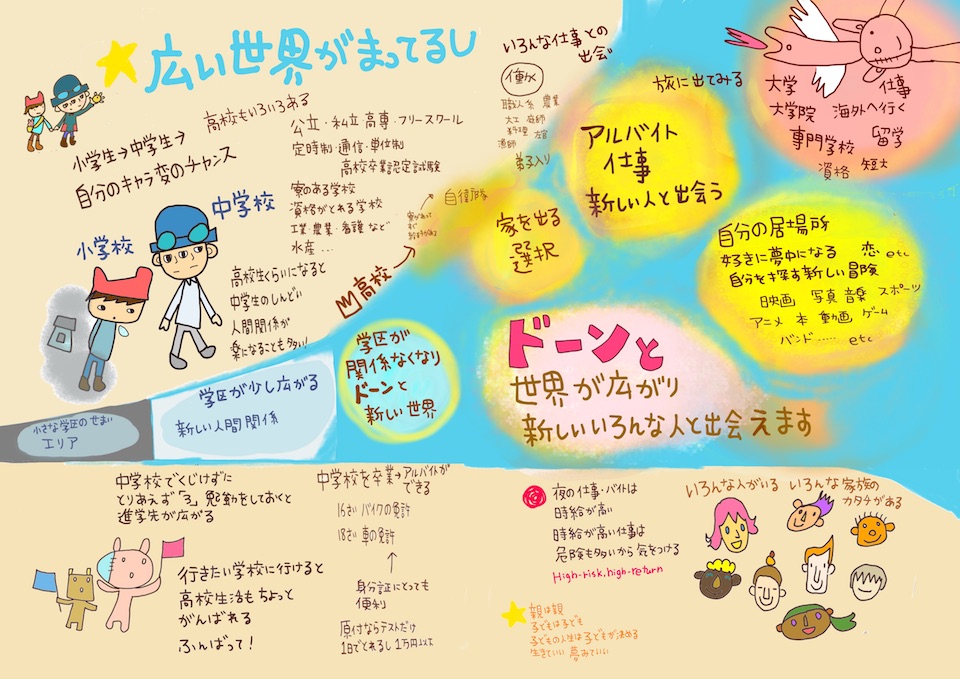 広い世界がまってるし
小学生→中学生→
自分のキャラ変のチャンス
高校もいろいろある
公立・私立・高専・フリースクール
定時制・通信・単位制
高校卒業認定試験
寮のある学校
資格がとれる学校
工業・農業・看護など
水産…
小学校
中学校
高校生くらいになると
中学生のしんどい
人間関係が
楽になることも多い!
高校
自衛隊
いろんな仕事との
出会い
働く
職人系 農業
大工 庭師
料理 左官
漁師
弟子入り
旅に出てみる
アルバイト
仕事
新しい人と出会う
家を出る
選択
大学 仕事
大学院 海外へ行く
専門学校 留学
資格 短大
自分の居場所
好きに夢中になる 恋 etc
自分を探す新しい冒険
映画 写真 音楽 スポーツ
アニメ 本 動画 ゲーム
バンド…… etc
小さな学区のせまい
エリア
学区が少し広がる
新しい人間関係
学区が
関係なくなり
ドーンと
新しい世界
ドーンと
世界が広がり
新しいいろんな人と出会えます
中学校でくじけずに
とりあえず「3」勉強をしておくと
進学先が広がる
行きたい学校に行けると
高校生活もちょっと
がんばれる
ふんばって!
中学校を卒業→アルバイトが
できる
16さい バイクの免許
18さい 車の免許
身分証にとっても
便利
原付ならテストだけ
1日でとれるし 1万円以下
夜の仕事・バイトは
時給が高い
時給が高い仕事は
危険も多いから気をつける
High-risk, high-return
親は親
子どもは子ども
子どもの人生は子どもが決める
生きていい 夢みていい
いろんな人がいる
いろんな家族の
カタチがある